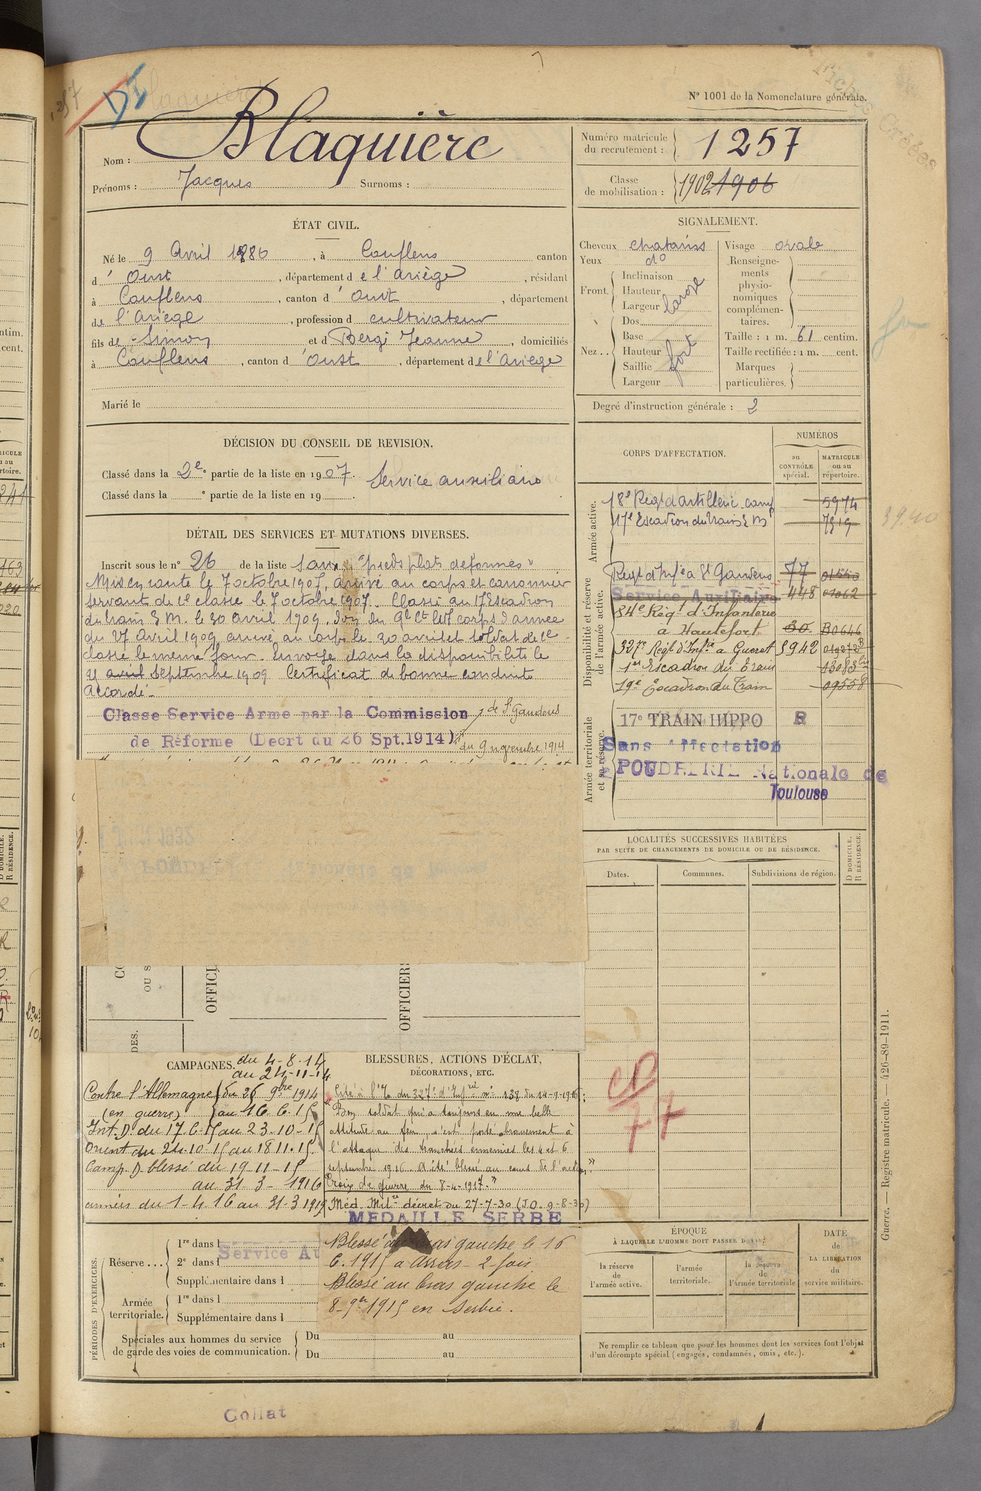 N° 1001 de la Nomenclature générale.
Nom : Blaquière
Prénoms : Jacques Surnoms :
Numéro matricule du recrutement : 1257
Classe de mobilisation : 1902 1906
ÉTAT CIVIL.
Né le 9 Avril 1886, à Couflens canton
d'Oust, département de l'Ariège, résidant
à Couflens, canton d'Oust, département
de l'Ariège, profession d cultivateur
fils de Simon et d Bergé Jeanne, domiciliés
à Couflens, canton d'Oust, département de l'Ariège
Marié le
SIGNALEMENT.
Cheveux chatains Visage ovale
Yeux do
Front. Inclinaison
Hauteur
Largeur
large
Nez... Dos
Base
Hauteur
Saillie
Largeur
fort
Renseignements physionomiques complémentaires.
Taille : 1 m. 61 centim.
Taille rectifiée : 1 m. cent.
Marques particulières.
Degré d'instruction générale : 2
DÉCISION DU CONSEIL DE REVISION.
Classé dans la 2e partie de la liste en 1907. Service auxiliaire
Classé dans la e partie de la liste en 19
DÉTAIL DES SERVICES ET MUTATIONS DIVERSES.
Inscrit sous le n° 26 de la liste "pieds plats deformes"
Mis en route le 7 octobre 1907, arrivé au corps et canonnier
servant de 2e classe le 7 octobre 1907. Classé au 17e Escadron
du train E.M. le 30 avril 1909.
du 27 Avril 1909 arrivé au corps le 30 avril et soldat de 2e
classe le meme jour. Envoyé dans la disponibilité le
21 avril Septembre 1909 Certificat de bonne conduite
accordé.
Classe Service Arme par la Commission de St Gaudens
de Réforme (Decrt du 26 Spt.1914) du 9 novembre 1914
CORPS D'AFFECTATION.
NUMÉROS
au CONTRÔLE spécial.
MATRICULE ou au répertoire.
Armée active.
18e Régt d'artillerie camp 5974
17e Escadron du train E.M 7919
3940
Disponibilité et réserve de l'armée active.
Regt d'Infie à St Gaudens 77
Service Auxiliaire 448
34e Régt d'Infanterie
à Hautefort 30
327e Régt d'Infie à Guéret 5942
1er Escadron du Train
19e Escadron du Train
Armée territoriale et sa réserve.
17e TRAIN HIPPO R
Sans Affectation
POUDRERIE Nationale de
Toulouse
LOCALITÉS SUCCESSIVES HABITÉES
PAR SUITE DE CHANGEMENTS DE DOMICILE OU DE RÉSIDENCE.
D DOMICILE. R RÉSIDENCE.
Dates. Communes. Subdivisions de région.
OFFICIERS
CAMPAGNES.
du 4-8-14
au 24-11-14
Contre l'Allemagne du 25 9bre 1914
(en guerre) au 16.6.15
Int. D. du 17.6.15 au 23-10-15
Orient du 24-10-15 au 18.11.15
Camp. D. blessé du 19-11-15
au 31-3-1916
armées du 1-4-16 au 31-3-1919
BLESSURES, ACTIONS D'ÉCLAT,
DÉCORATIONS, ETC.
Cité à l'O. du 327e d'Infrie n° 139 du 14-9-1916 :
"Bon soldat qui a toujours eu une belle
attitude au feu, s'est porté bravement à
l'attaque des tranchées ennemies les 4 et 6
septembre 1916. A été blessé au cours de l'action"
Croix de guerre du 8-4-1917.
Méd. Milre décret du 27-7-30 (J.O. 9-8-30)
MEDAILLE SERBE
Blessé au bras gauche le 16
6.1915 à Arras 2 fois
Blessé au bras gauche le
8-9bre 1915 en Serbie.
CP
77
PÉRIODES D'EXERCICES.
Réserve...
1re dans l
2e dans l
Supplémentaire dans l
Service Au
Armée territoriale.
1re dans l
Supplémentaire dans l
Spéciales aux hommes du service de garde des voies de communication.
Du au
Du au
ÉPOQUE
À LAQUELLE L'HOMME DOIT PASSER DANS :
la réserve de l'armée active.
l'armée territoriale.
la réserve de l'armée territoriale
DATE de LA LIBÉRATION du service militaire.
Ne remplir ce tableau que pour les hommes dont les services font l'objet
d'un décompte spécial (engagés, condamnés, omis, etc.).
Guerre. — Registre matricule. — 426-89-1911.
Collat